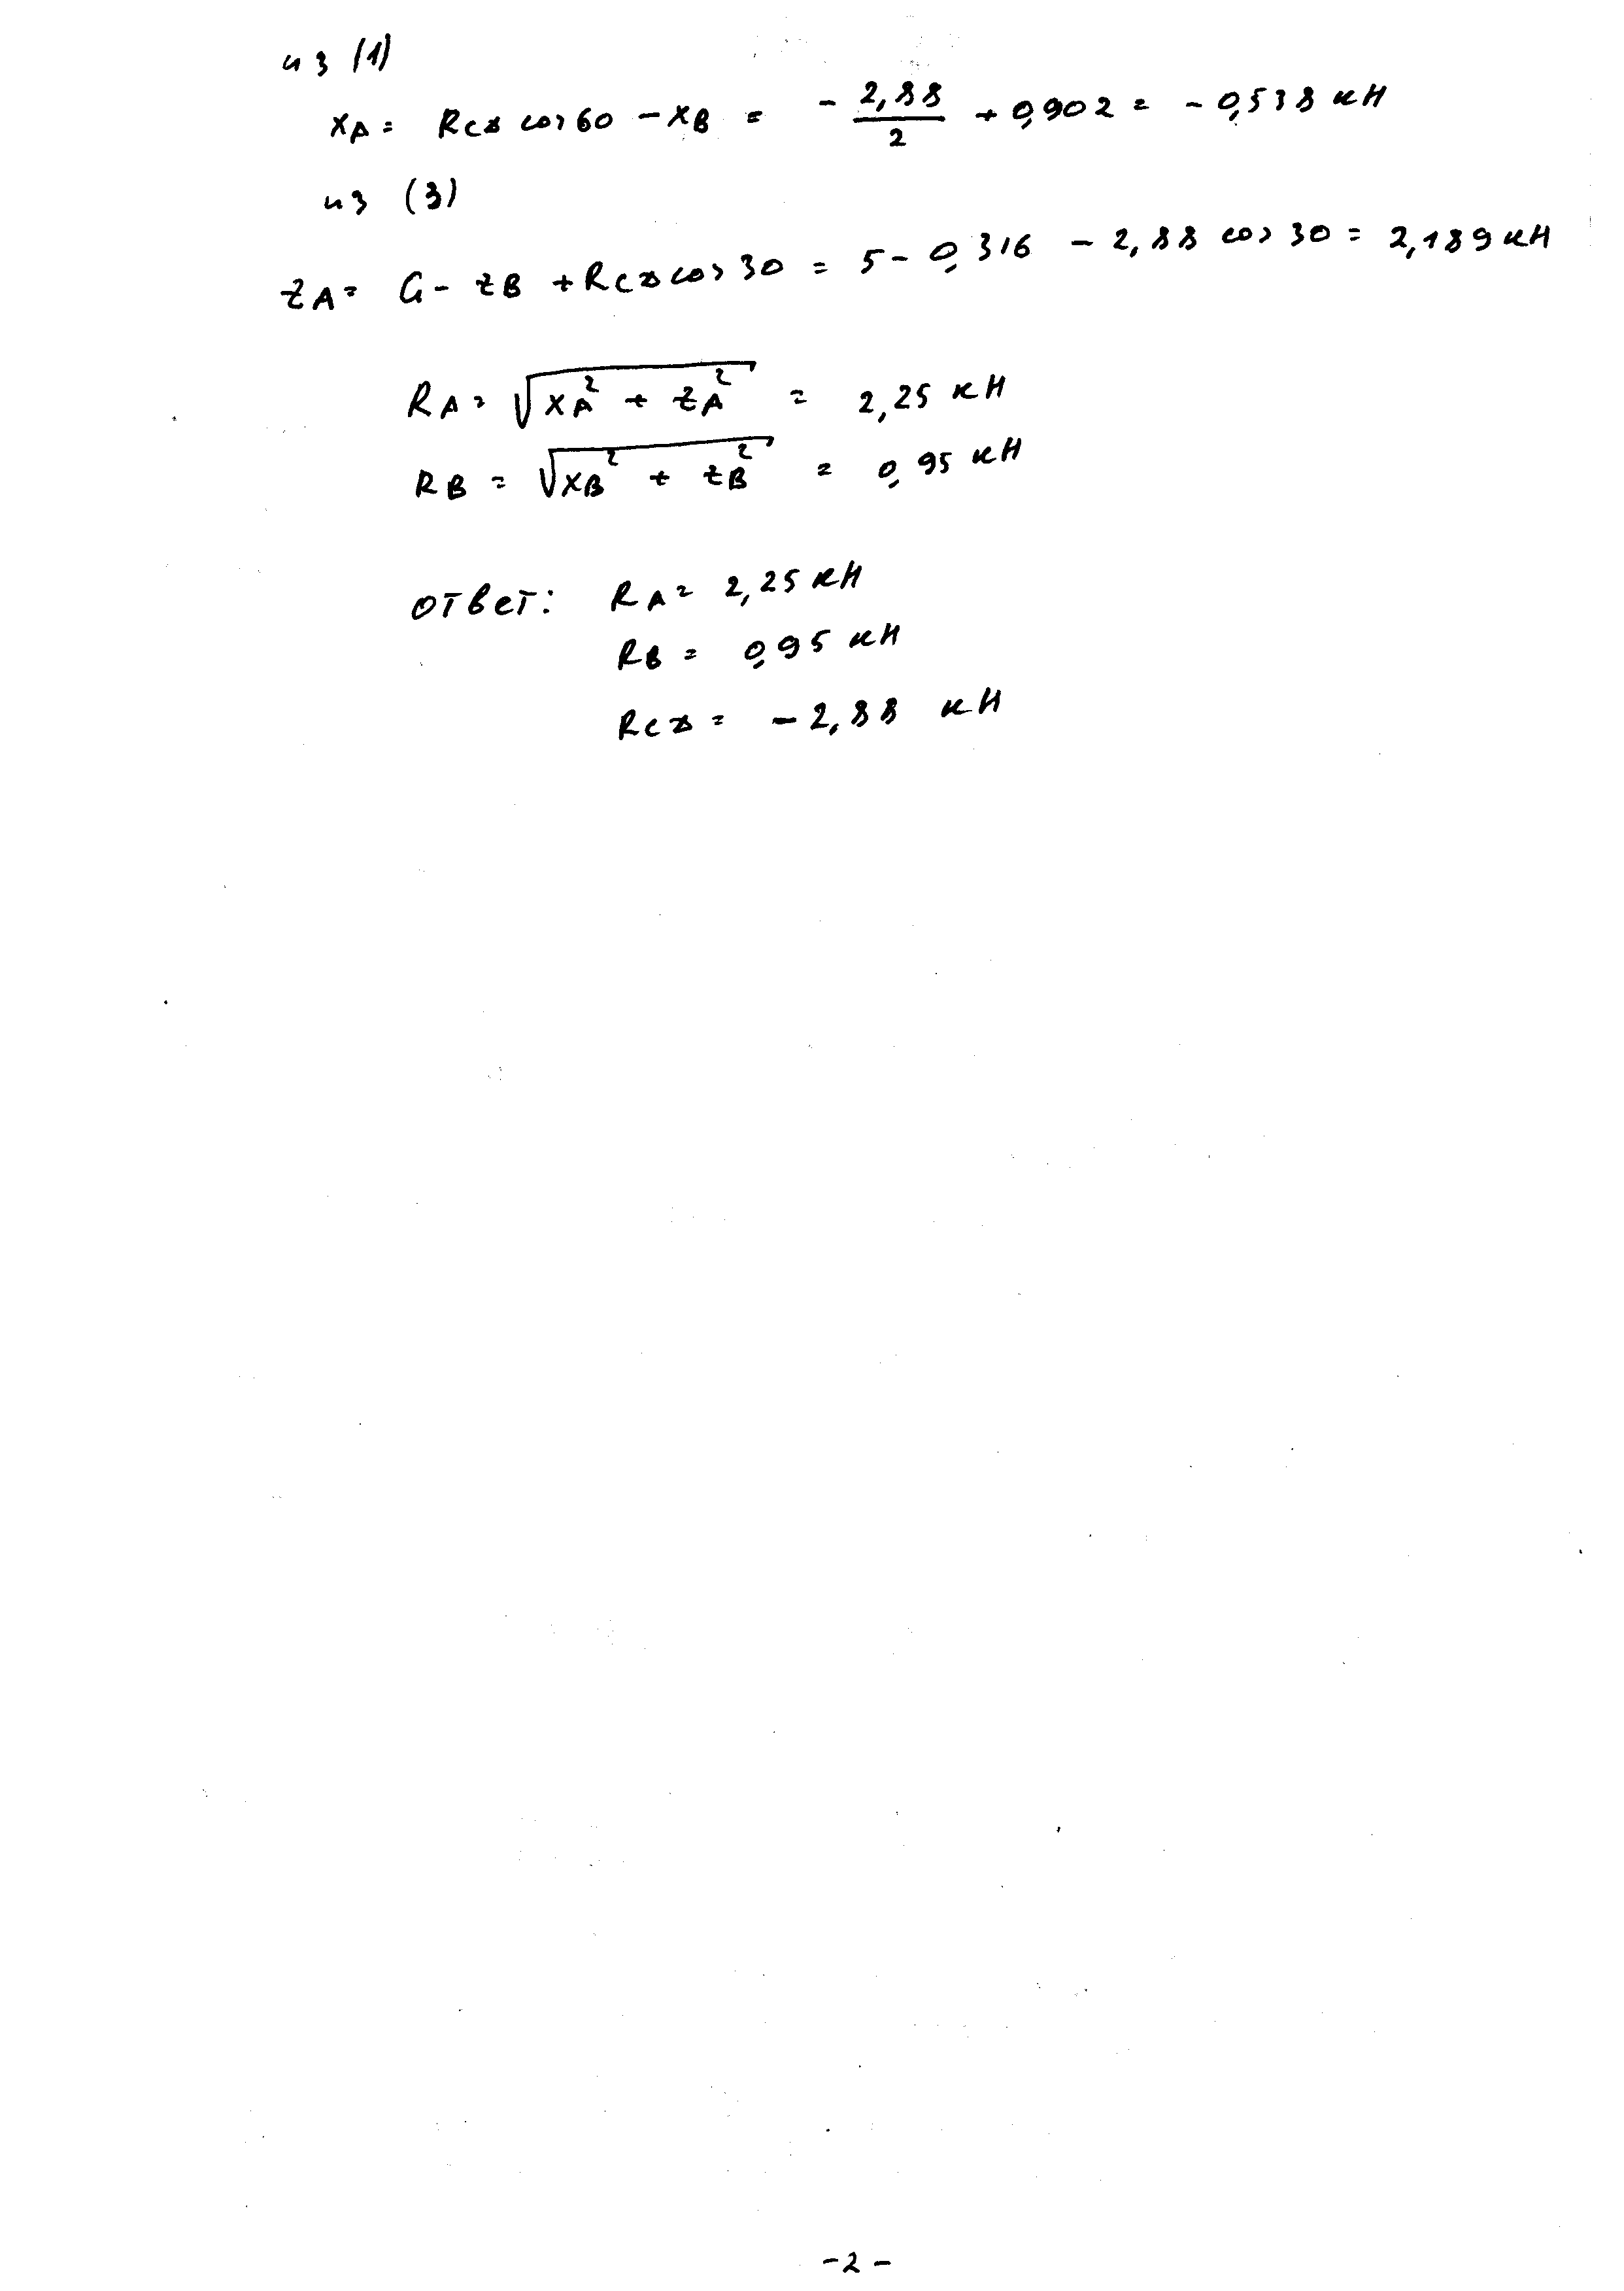 из (1)
XA = RCD cos 60 - XB = - 2,88/2 + 0,902 = - 0,538 кН
из (3)
ZA = G - ZB + RCD cos 30 = 5 - 0,316 - 2,88 cos 30 = 2,189 кН
RA = √(XA² + ZA²) = 2,25 кН
RB = √(XB² + ZB²) = 0,95 кН
Ответ: RA = 2,25 кН
RB = 0,95 кН
RCD = - 2,88 кН
- 2 -